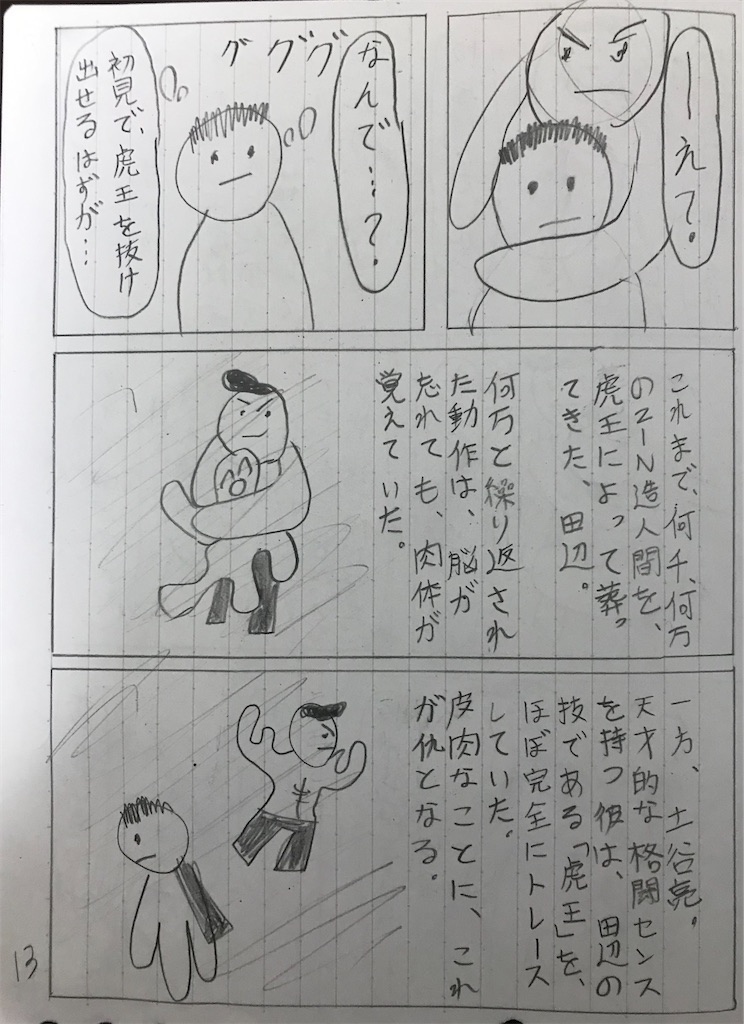 ーえて。
なんで…?。
ググググ
初見で、虎王を抜け
出せるはずが…
これまで、何千、何万
のZIN造人間を、
虎王によって葬っ
てきた、田辺。
何万と繰り返され
た動作は、脳が
忘れても、肉体が
覚えていた。
一方、土谷亮。
天才的な格闘センス
を持つ彼は、田辺の
技である「虎王」を、
ほぼ完全にトレース
していた。
皮肉なことに、これ
が仇となる。
13